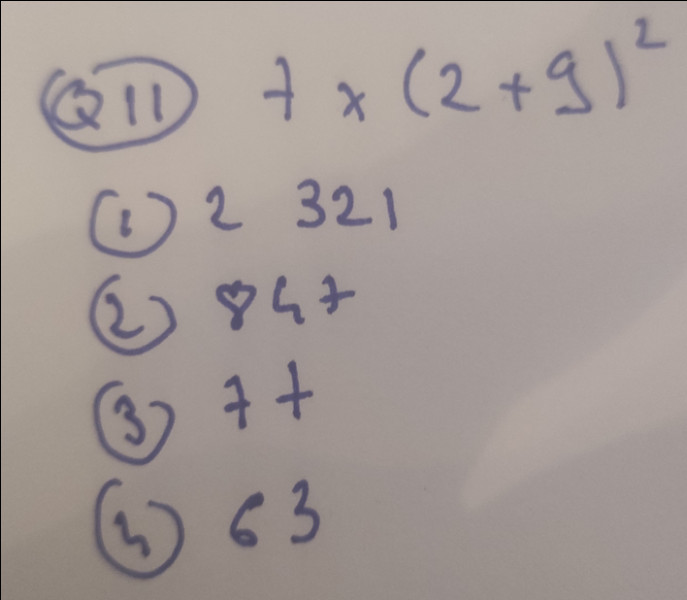 Q11 7 x (2 + 9)²
① 2 321
② 847
③ 77
④ 63